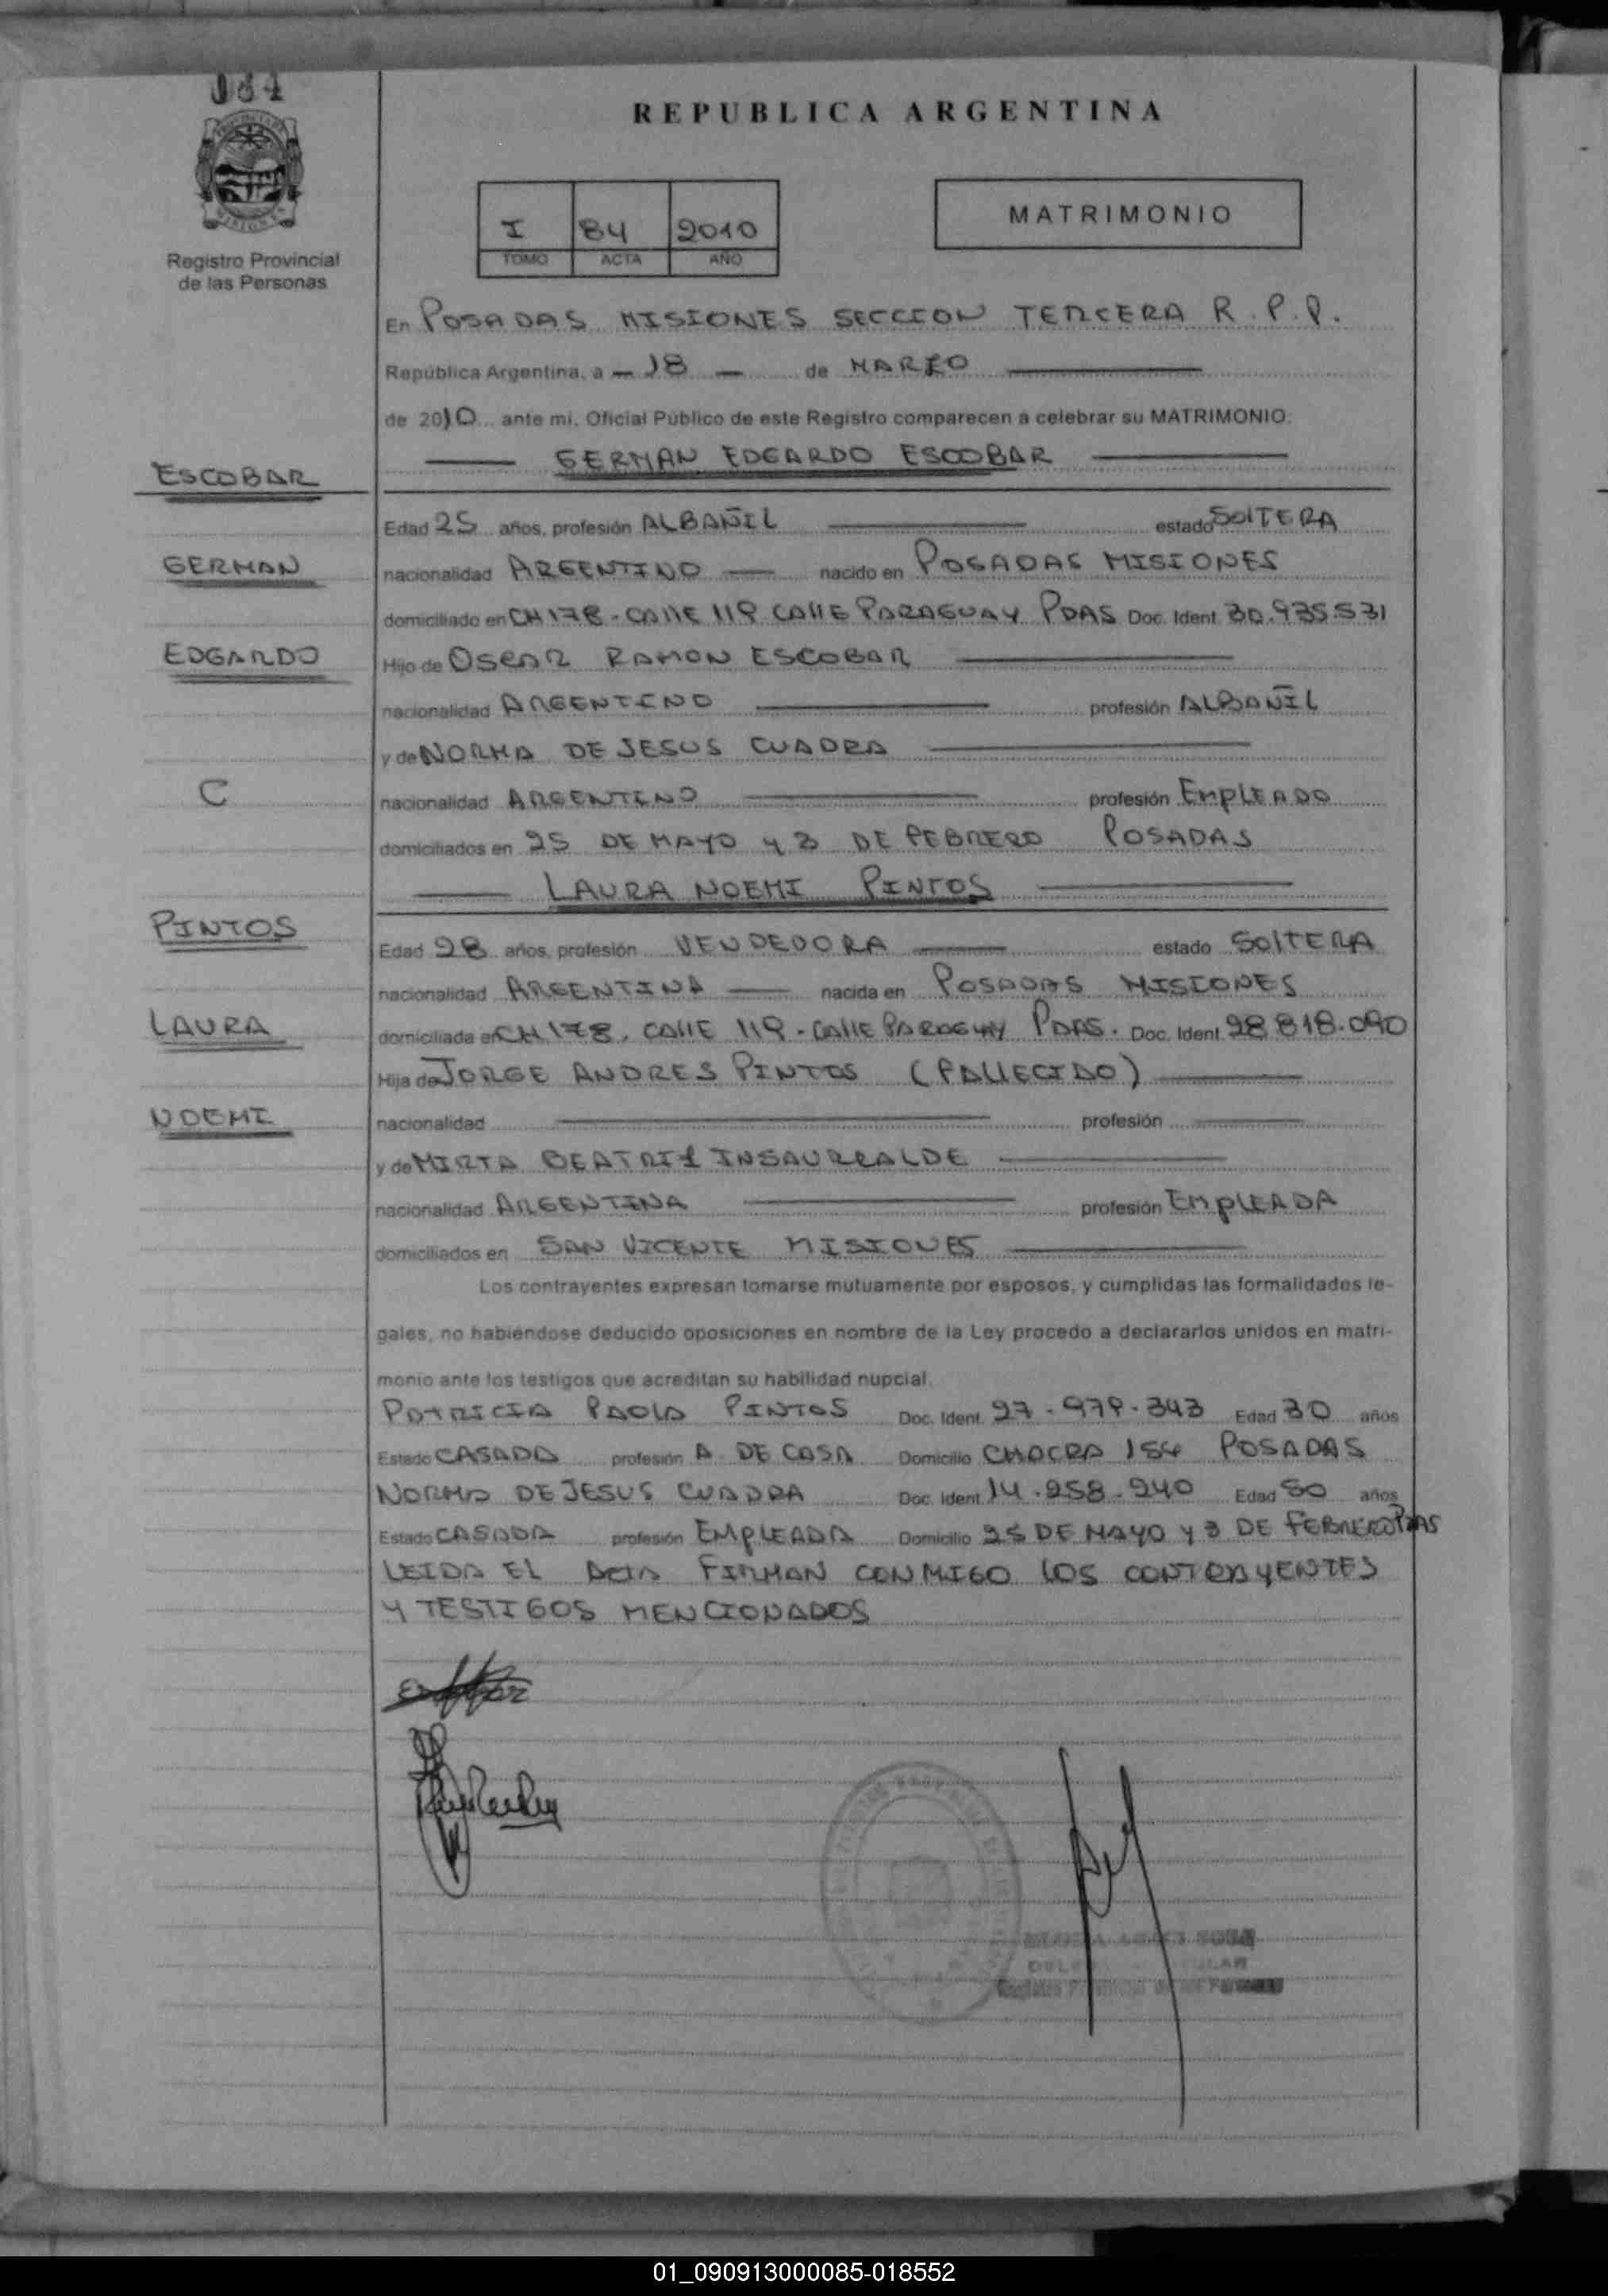 084
REPUBLICA ARGENTINA
I 84 2010
TOMO ACTA AÑO
MATRIMONIO
Registro Provincial
de las Personas
En POSADAS MISIONES SECCION TERCERA R.P.P.
República Argentina, a - 18 - de MARZO
de 2010 ante mi, Oficial Público de este Registro comparecen a celebrar su MATRIMONIO:
GERMAN EDGARDO ESCOBAR
ESCOBAR
Edad 25 años, profesión ALBAÑIL estado SOLTERA
GERMAN
nacionalidad ARGENTINO nacido en POSADAS MISIONES
domiciliado en CH 178 - CALLE 119 CALLE PARAGUAY PDAS Doc. Ident. 30.935.531
EDGARDO
Hijo de OSCAR RAMON ESCOBAR
nacionalidad ARGENTINO profesión ALBAÑIL
y de NORMA DE JESUS CUADRA
C
nacionalidad ARGENTINO profesión EMPLEADO
domiciliados en 25 DE MAYO Y 3 DE FEBRERO POSADAS
LAURA NOEMI PINTOS
PINTOS
Edad 28 años, profesión VENDEDORA estado SOLTERA
nacionalidad ARGENTINA nacida en POSADAS MISIONES
LAURA
domiciliada en CH 178. CALLE 119 - CALLE PARAGUAY PDAS. Doc. Ident. 28.818.090
Hija de JORGE ANDRES PINTOS (FALLECIDO)
NOEMI
nacionalidad profesión
y de MIRTA BEATRIZ INSAURRALDE
nacionalidad ARGENTINA profesión EMPLEADA
domiciliados en SAN VICENTE MISIONES
Los contrayentes expresan tomarse mutuamente por esposos, y cumplidas las formalidades le-
gales, no habiéndose deducido oposiciones en nombre de la Ley procedo a declararlos unidos en matri-
monio ante los testigos que acreditan su habilidad nupcial.
PATRICIA PAOLA PINTOS Doc. Ident. 27.979.343 Edad 30 años
Estado CASADA profesión A. DE CASA Domicilio CHACRA 154 POSADAS
NORMA DE JESUS CUADRA Doc. Ident. 14.258.240 Edad 50 años
Estado CASADA profesión EMPLEADA Domicilio 25 DE MAYO Y 3 DE FEBRERO PDAS
LEIDA EL ACTA FIRMAN CONMIGO LOS CONTRAYENTES
Y TESTIGOS MENCIONADOS
01_090913000085-018552